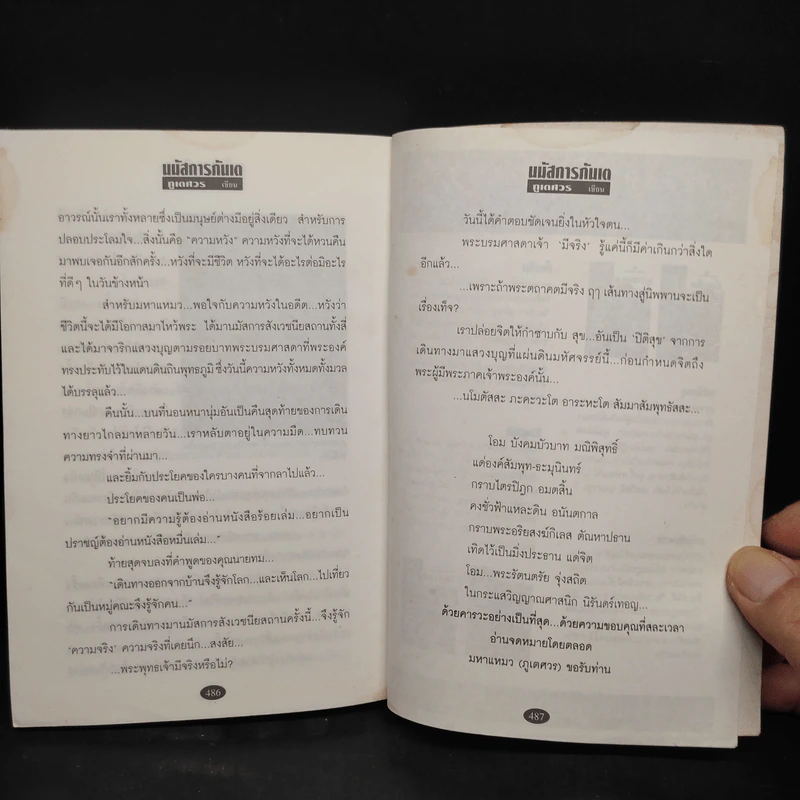 นมัสการภันเต
ภูเตศวร เขียน
อาวรณ์นั้นเราทั้งหลายซึ่งเป็นมนุษย์ต่างมีอยู่สิ่งเดียว สำหรับการ
ปลอบประโลมใจ...สิ่งนั้นคือ "ความหวัง" ความหวังที่จะได้หวนคืน
มาพบเจอกันอีกสักครั้ง...หวังที่จะมีชีวิต หวังที่จะได้อะไรต่อมิอะไร
ที่ดีๆ ในวันข้างหน้า
สำหรับมหาแหมว...พอใจกับความหวังในอดีต...หวังว่า
ชีวิตนี้จะได้มีโอกาสมาไหว้พระ ได้มานมัสการสังเวชนียสถานทั้งสี่
และได้มาจาริกแสวงบุญตามรอยบาทพระบรมศาสดาที่พระองค์
ทรงประทับไว้ในแดนดินถิ่นพุทธภูมิ ซึ่งวันนี้ความหวังทั้งหมดทั้งมวล
ได้บรรลุแล้ว...
คืนนั้น...บนที่นอนหนานุ่มอันเป็นคืนสุดท้ายของการเดิน
ทางยาวไกลมาหลายวัน...เราหลับตาอยู่ในความมืด...ทบทวน
ความทรงจำที่ผ่านมา...
และยิ้มกับประโยคของใครบางคนที่จากลาไปแล้ว...
ประโยคของคนเป็นพ่อ...
"อยากมีความรู้ต้องอ่านหนังสือร้อยเล่ม...อยากเป็น
ปราชญ์ต้องอ่านหนังสือหมื่นเล่ม..."
ท้ายสุดจบลงที่คำพูดของคุณนายทม...
"เดินทางออกจากบ้านจึงรู้จักโลก...และเห็นโลก...ไปเที่ยว
กันเป็นหมู่คณะจึงรู้จักคน..."
การเดินทางมานมัสการสังเวชนียสถานครั้งนี้...จึงรู้จัก
'ความจริง' ความจริงที่เคยนึก...สงสัย...
...พระพุทธเจ้ามีจริงหรือไม่?
486
นมัสการภันเต
ภูเตศวร เขียน
วันนี้ได้คำตอบชัดเจนยิ่งในหัวใจตน...
พระบรมศาสดาเจ้า 'มีจริง' รู้แค่นี้ก็มีค่าเกินกว่าสิ่งใด
อีกแล้ว...
...เพราะถ้าพระตถาคตมีจริง ฤๅ เส้นทางสู่นิพพานจะเป็น
เรื่องเท็จ?
เราปล่อยจิตให้กำซาบกับ สุข...อันเป็น 'ปิติสุข' จากการ
เดินทางมาแสวงบุญที่แผ่นดินมหัศจรรย์นี้...ก่อนกำหนดจิตถึง
พระผู้มีพระภาคเจ้าพระองค์นั้น...
...นโมตัสสะ ภะคะวะโต อาระหะโต สัมมาสัมพุทธัสสะ...
โอม บังคมบัวบาท มณีพิสุทธิ์
แด่องค์สัมพุท-ธะมุนินทร์
กราบไตรปิฎก อมตสิ้น
คงชั่วฟ้าแหละดิน อนันตกาล
กราบพระอริยสงฆ์กิเลส ตัณหาปธาน
เทิดไว้เป็นมิ่งประธาน แด่จิต
โอม...พระรัตนตรัย จุ่งสถิต
ในกระแสวิญญาณศาสนิก นิรันดร์เทอญ...
ด้วยคารวะอย่างเป็นที่สุด...ด้วยความขอบคุณที่สละเวลา
อ่านจดหมายโดยตลอด
มหาแหมว (ภูเตศวร) ขอรับท่าน
487